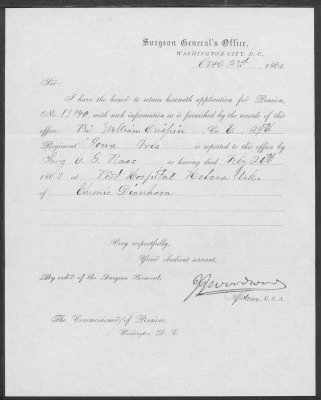 Surgeon General's Office,
WASHINGTON CITY, D. C.
Oct 23rd 186
Sir:
I have the honor to return herewith application for Pension,
No. 19190, with such information as is furnished by the records of this
office. William Crispin Co. E. 29th
Regiment Iowa Vols is reported to this office by
Surg as having died Feby 20th
1863, at Post Hospital Helena Ark.
of Chronic Diarrhoea
Very respectfully,
Your obedient servant,
By order of the Surgeon General:
JJWoodward
U. S. A.
The Commissioner of Pensions,
Washington, D. C.